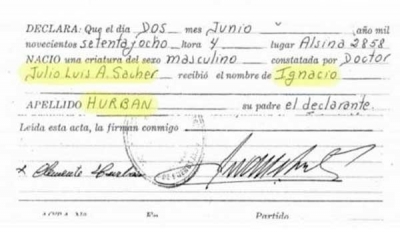 DECLARA: Que el día DOS mes Junio año mil
novecientos setentajocho hora 4 lugar Alsina 2858
NACIO una criatura del sexo masculino constatada por Doctor
Julio Luis A. Sacher recibió el nombre de Ignacio
APELLIDO HURBAN su padre el declarante
Leída esta acta, la firman conmigo
Clemente Hurban
ACTA Nº En Partido